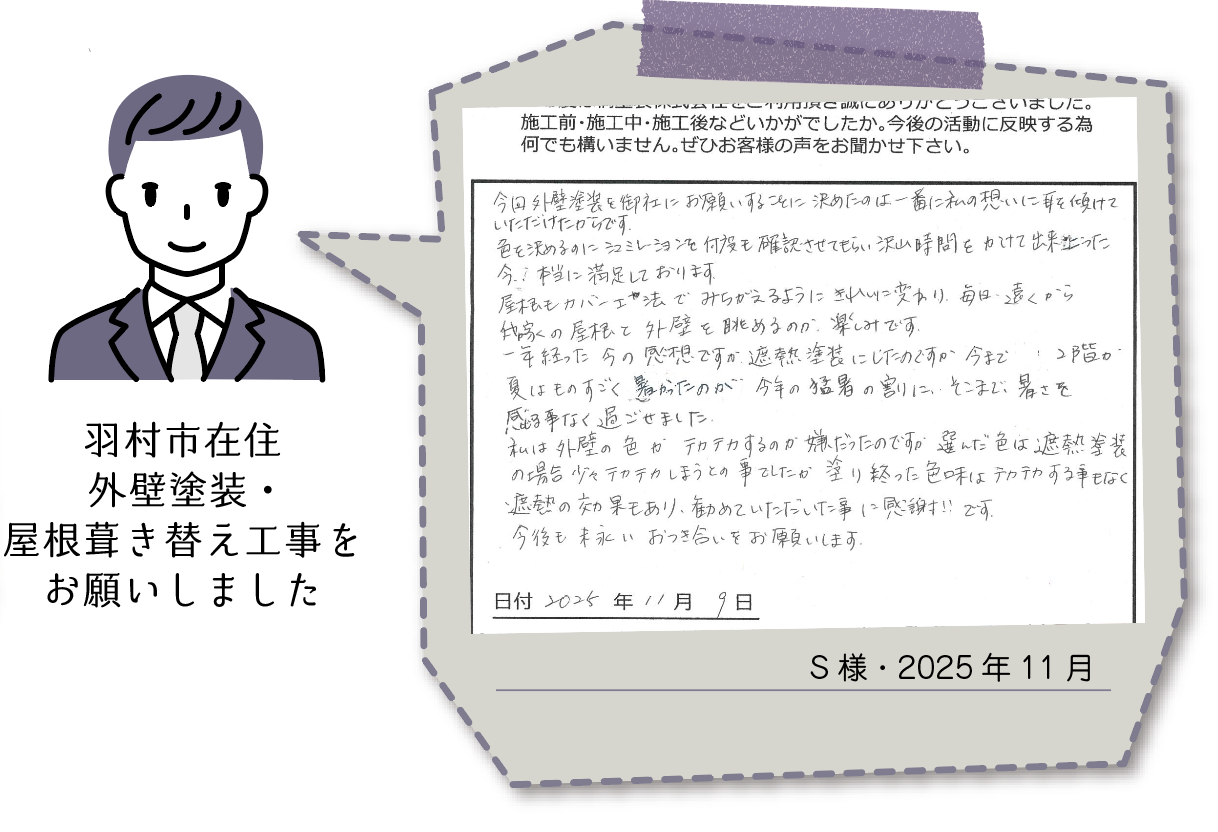 羽村市在住
外壁塗装・
屋根葺き替え工事を
お願いしました
塗装株式会社をご利用頂き誠にありがとうございました。
施工前・施工中・施工後などいかがでしたか。今後の活動に反映する為
何でも構いません。ぜひお客様の声をお聞かせ下さい。
今回外壁塗装を御社にお願いすることに決めたのは一番に私の想いに耳を傾けて
いただけたからです。
色を決めるのにシュミレーションを何役も確認させてもらい沢山時間をかけて出来上った
今 本当に満足しております。
屋根もカバー工法でみちがえるようにきれいに変わり、毎日、遠くから
我家の屋根と外壁を眺めるのが、楽しみです。
一年経った今の感想ですが遮熱塗装にしたのですが今まで 2階が
夏はものすごく暑かったのが 今年の猛暑の割に、そこまで、暑さを
感る事なく過ごせました。
私は外壁の色がテカテカするのが嫌だったのですが選んだ色は遮熱塗装
の場合少々テカテカしまうとの事でしたが塗り終った色味はテカテカする事もなく
遮熱の効果もあり、勧めていただいた事に感謝!!です。
今後も末永いおつき合いをお願いします。
日付 2025 年 11 月 9 日
S 様・2025 年 11 月